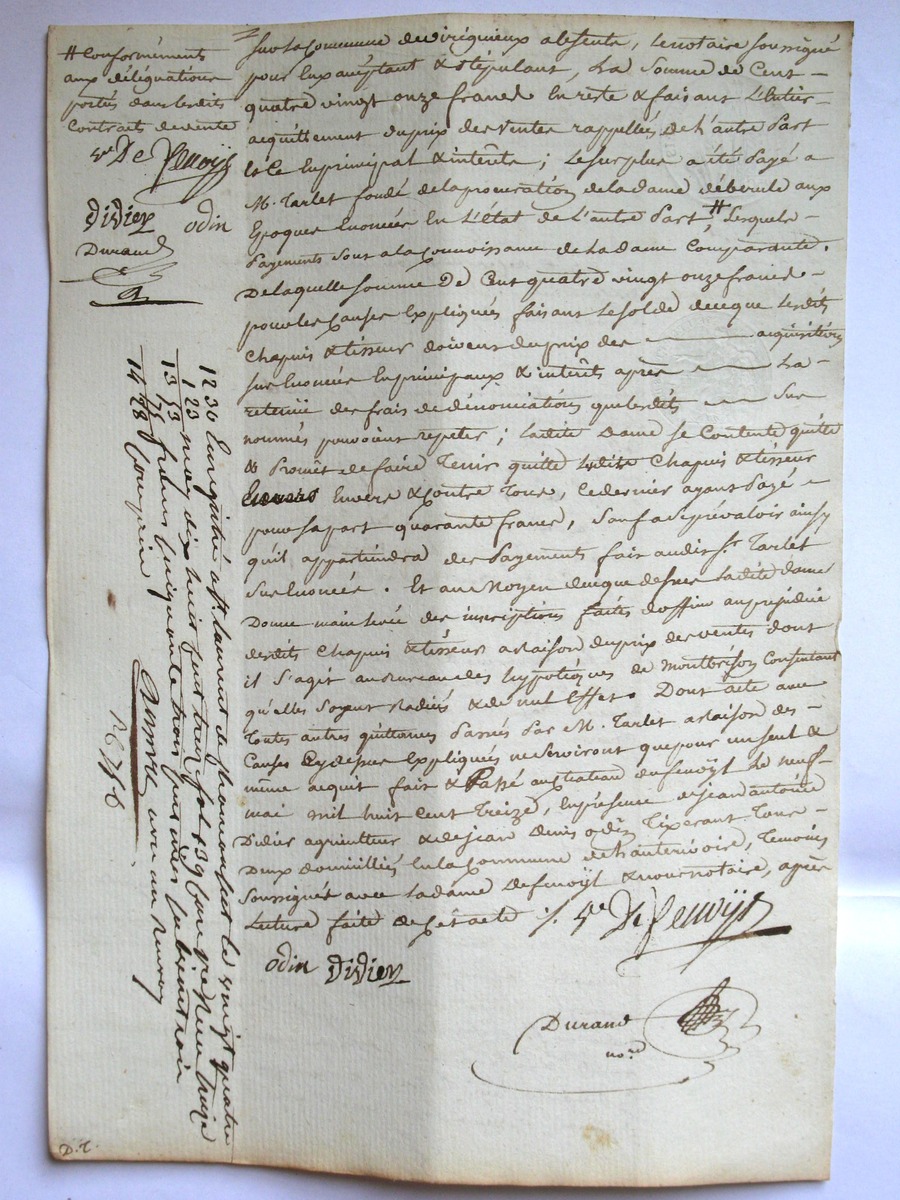 # Conformément
aux délégations
portés dans lesdits
Contrats de vente
Ve De fenoÿl
Didier odin
Durand
sur la Commune de virigneux absents, le notaire soussigné
pour eux acceptant & stipulant, La Somme de Cent
quatre vingt onze francs En reste & faisant L'Entier
acquittement du prix des ventes rappellés de L'autre Part
En principal & intérêts ; le surplus a été Payé a
M. Tarlet fondé de la procuration de la dame aux
Epoques Enoncées En L'état de L'autre Part #, Lesquels
Payements sont a la Connoissance de la dame Comparante.
De laquelle somme De Cent quatre vingt onze francs
pour les Causes Expliqués faisant le solde de ce que lesdits
Chapuis & tisseur doivent du prix des acquisitions
sus Enoncées En principaux & intérêts après La
retenüe des frais de dénonciations que lesdits Sus
nommés pouvoient repeter ; ladite Dame se Contente quitte
& Promêt de faire Tenir quitte lesdits Chapuis & tisseur
Envers & Contre Tous, Ce dernier ayant Payé
pour sa part quarante francs, sauf a se prévaloir ainsy
qu'il appartiendra des Payements fait audit Sr Tarlet
Sus Enoncés. Et au Moyen de ce que dessus ladite dame
Donne main levée des inscriptions faites d'office au préjudice
desdits Chapuis & tisseur a raison du prix des ventes dont
il s'agit au Bureau des hypotèques de Montbrison Consentant
qu'elles soyent Radiés & de nul Effet. Dont acte avec
Toutes autres quittances Passés Par M. Tarlet a raison des
Causes Cy dessus Expliqués ne serviront que pour un seul &
même acquit fait & Passé au Chateau de fenoÿl le neuf
mai mil huit Cent Treize, En présence de jean antoine
Didier agriculteur & de jean denis odin Tixerant Tous
Deux domiciliés En la Commune de hauterivoire, Témoins
Soussignés avec la dame De fenoÿl & nous notaire, après
Lecture faite de Cet acte ./. Ve De fenoÿl
odin Didier
Durand
nore
1230 Enregistré a St Laurent de Chamousset le vingt quatre
123 may dix huit cent treize fol 139 Reçu treize
1353
75 francs Cinquante trois centimes
1428 Compris
avec un renvoy
D.T.